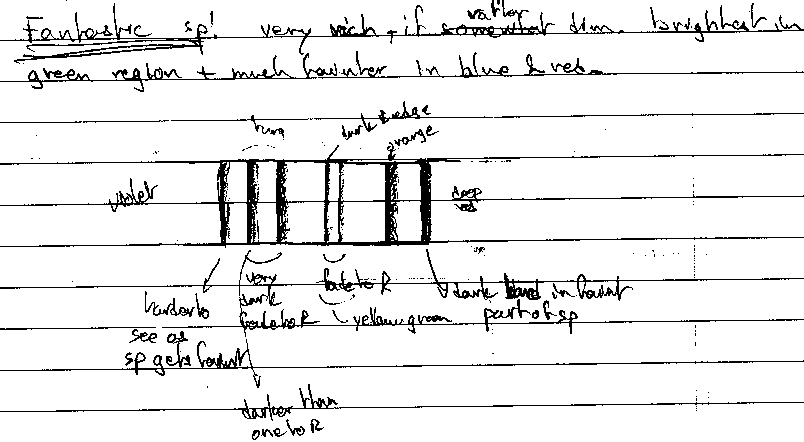 Fantastic sp! very rich, if rather dim. brightest in
green region + much fainter in blue & red.
dark edge
orange
violet
deep
red
harder to
see as
sp gets faint
very
dark
fade to R
fade to R
yellow-green
dark band in faint
part of sp
darker than
one to R